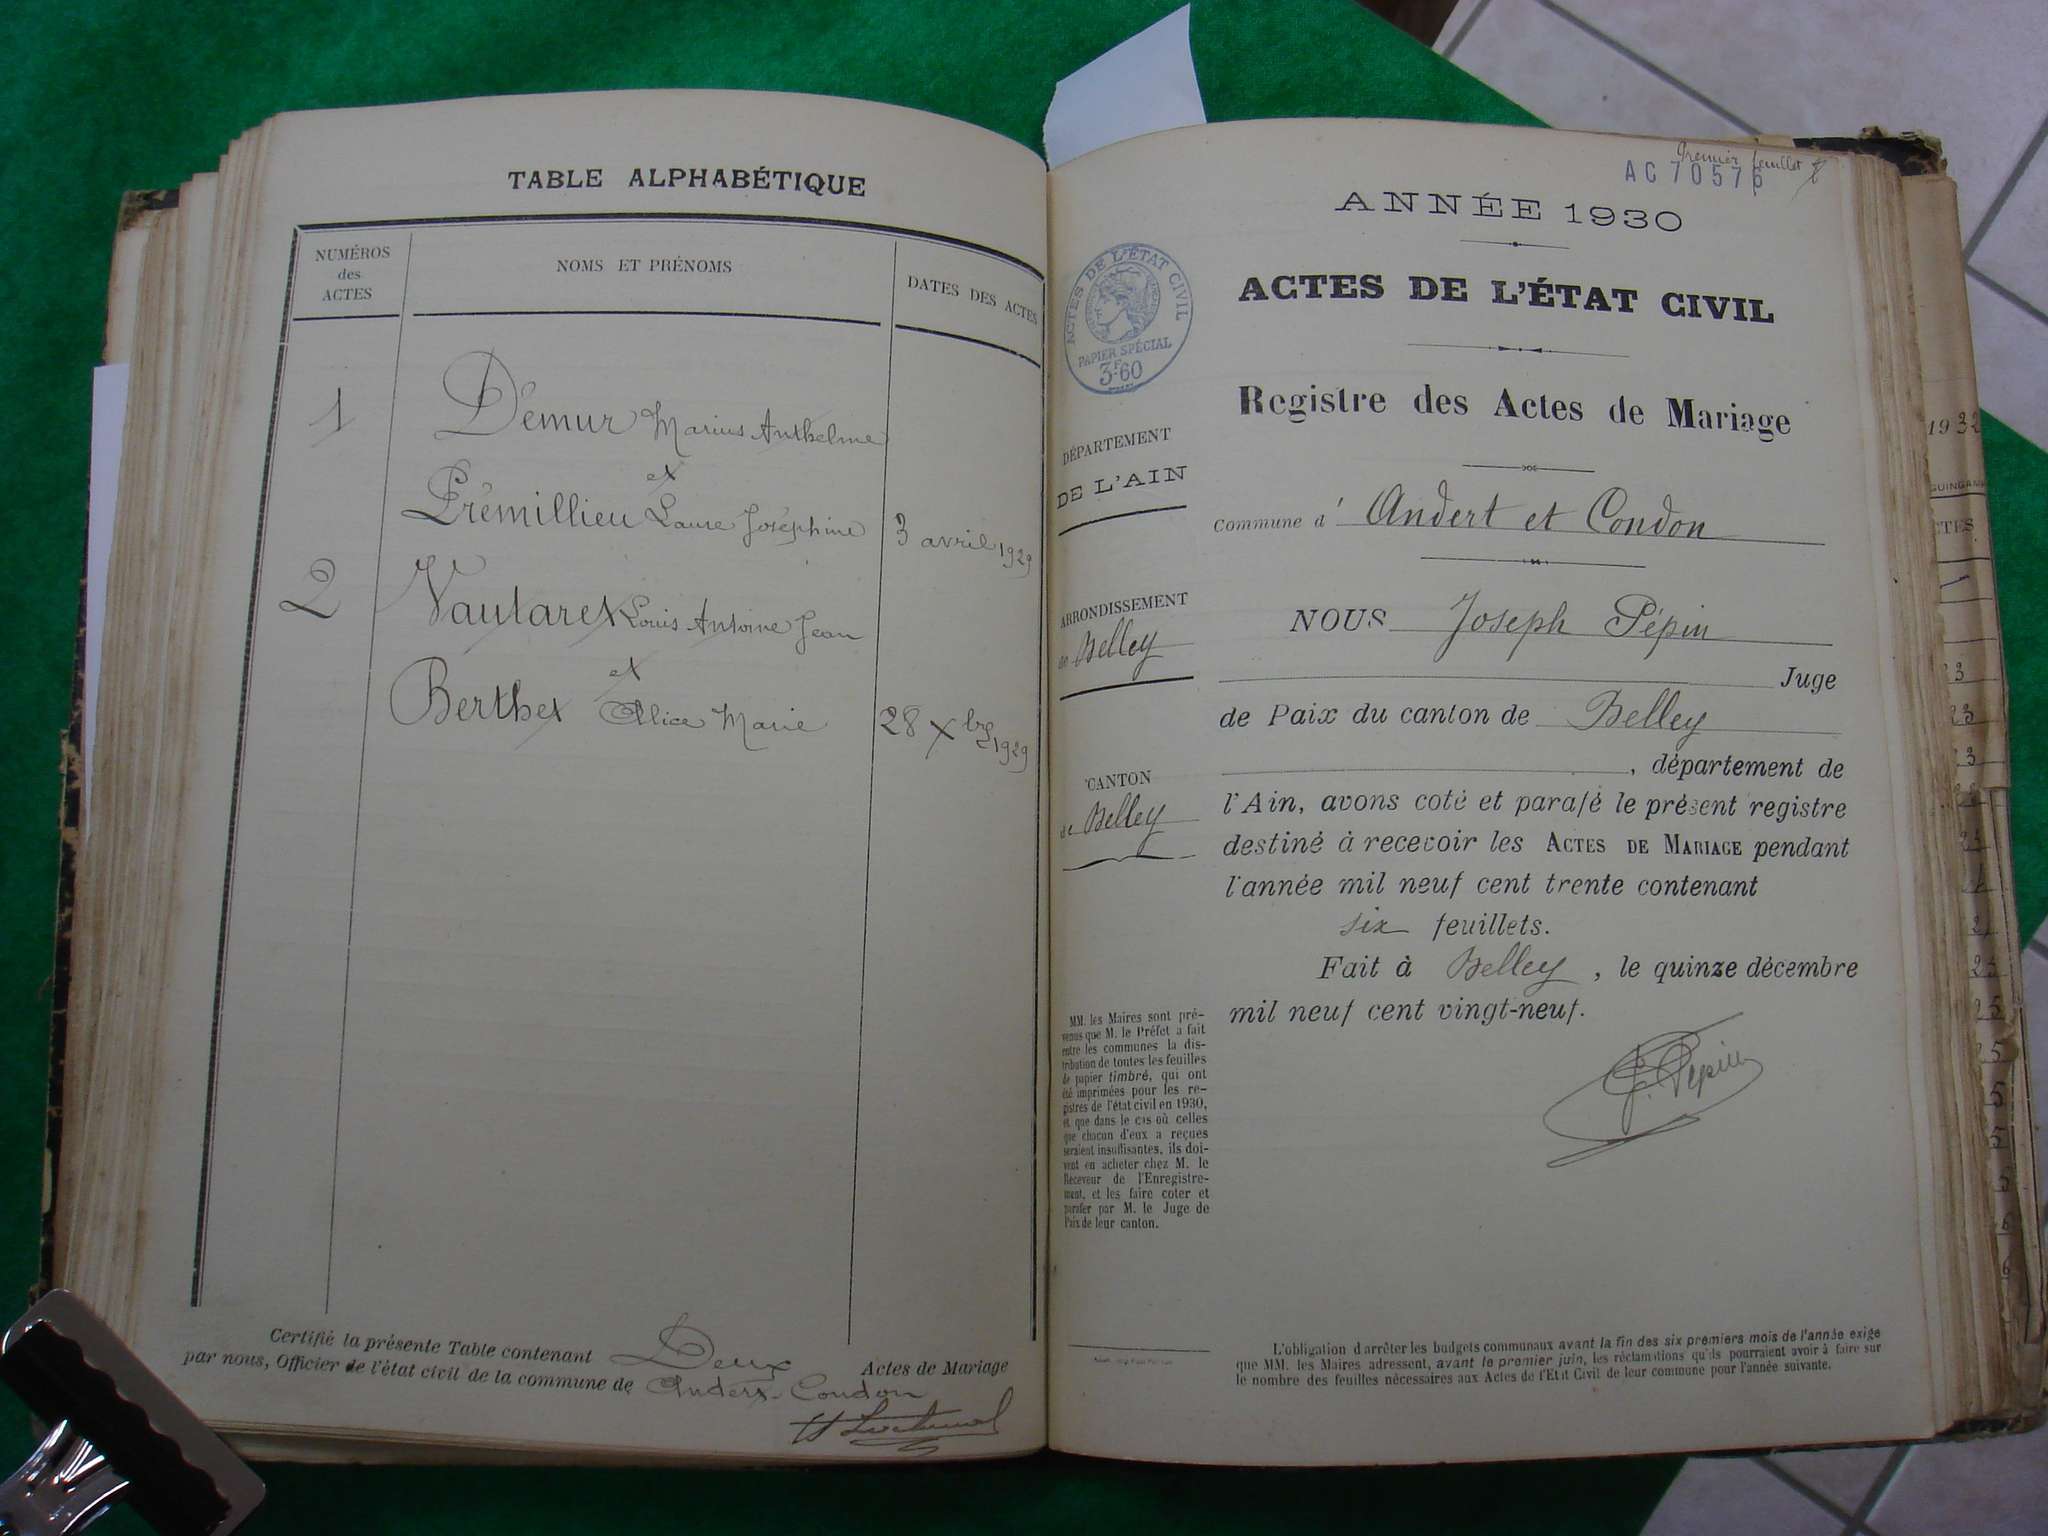 TABLE ALPHABÉTIQUE
NUMÉROS
des
ACTES
NOMS ET PRÉNOMS
DATES DES ACTES
1
Démur Marius Anthelme
et
Prémillieu Laure Joséphine
3 avril 1929
2
Vautaret Louis Antoine Jean
et
Berthet Alice Marie
28 Xbre 1929
Certifié la présente Table contenant Deux Actes de Mariage
par nous, Officier de l'état civil de la commune de Andert-Condon
Premier feuillet
AC 70576
ANNÉE 1930
ACTES DE L'ÉTAT CIVIL
ACTES DE L'ÉTAT CIVIL
PAPIER SPÉCIAL
3F60
Registre des Actes de Mariage
DÉPARTEMENT
DE L'AIN
Commune d' Andert et Condon
ARRONDISSEMENT
de Belley
NOUS Joseph Pépin
Juge
de Paix du canton de Belley
CANTON
de Belley
, département de
l'Ain, avons coté et parafé le présent registre
destiné à recevoir les ACTES DE MARIAGE pendant
l'année mil neuf cent trente contenant
six feuillets.
Fait à Belley, le quinze décembre
mil neuf cent vingt-neuf.
J. Pépin
MM. les Maires sont pré-
venus que M. le Préfet a fait
entre les communes la dis-
tribution de toutes les feuilles
de papier timbré, qui ont
été imprimées pour les re-
gistres de l'état civil en 1930,
et que dans le cas où celles
que chacun d'eux a reçues
seraient insuffisantes, ils doi-
vent en acheter chez M. le
Receveur de l'Enregistre-
ment, et les faire coter et
parafer par M. le Juge de
Paix de leur canton.
L'obligation d'arrêter les budgets communaux avant la fin des six premiers mois de l'année exige
que MM. les Maires adressent, avant le premier juin, les réclamations qu'ils pourraient avoir à faire sur
le nombre des feuilles nécessaires aux Actes de l'Etat Civil de leur commune pour l'année suivante.
1932